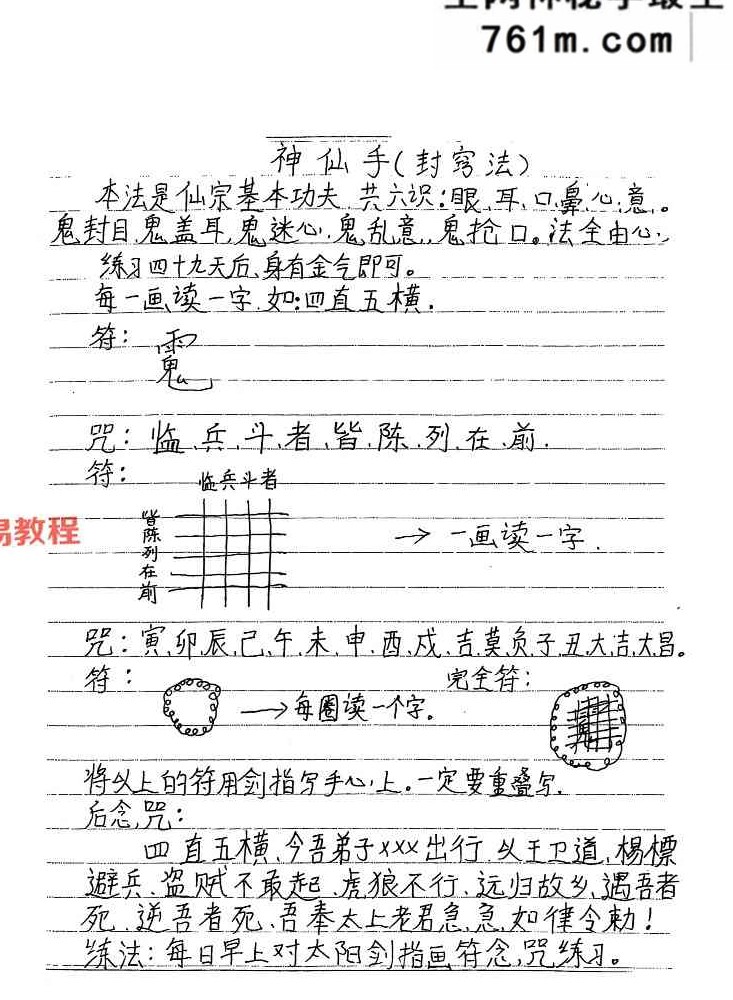 761m.com
神仙手(封窍法)
本法是仙宗基本功夫 共六识:眼、耳、口、鼻、心、意。
鬼封目、鬼盖耳、鬼迷心、鬼乱意、鬼抢口。法全由心,
练习四十九天后、身有金气即可。
每一画读一字、如:四直五横.
符:
咒:临、兵、斗、者、皆、陈、列、在、前.
符:
临兵斗者
皆陈列在前
→ 一画读一字.
易教程
咒:寅、卯、辰、己、午、未、申、酉、戍、吉、莫、负、子、丑、大、吉、大昌。
符: 完全符:
→ 每圈读一个字。
将以上的符用剑指写手心上。一定要重叠写.
后念咒:
四直五横、今吾弟子xxx出行、以王卫道、楊標
避兵、盗贼不敢起、虎狼不行、远归故乡、遇吾者
死、逆吾者死、吾奉太上老君急、急、如律令勅!
练法:每日早上对太阳剑指画符念咒练习。